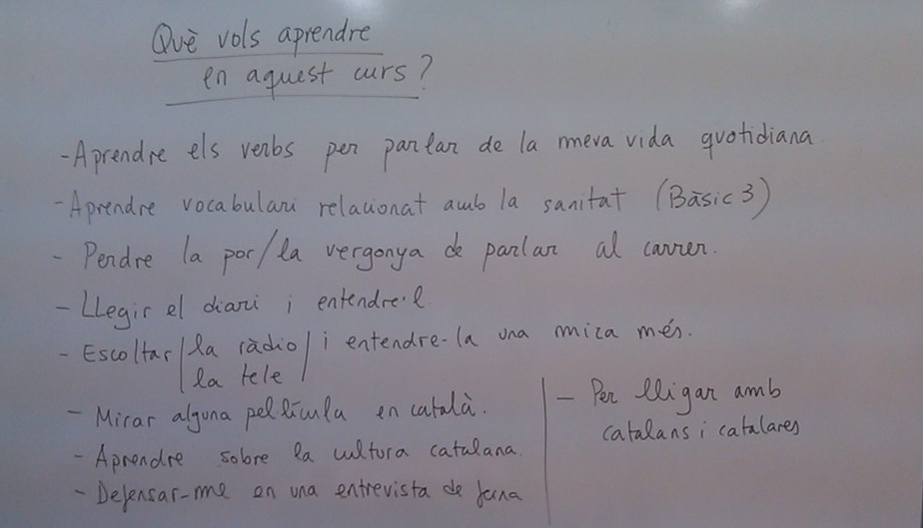 Què vols aprendre
en aquest curs?
-Aprendre els verbs per parlar de la meva vida quotidiana.
-Aprendre vocabulari relacionat amb la sanitat (Bàsic 3)
- Perdre la por/la vergonya de parlar al carrer.
- Llegir el diari i entendre'l.
- Escoltar la ràdio / i entendre-la una mica més.
la tele
- Mirar alguna pel·lícula en català.
- Aprendre sobre la cultura catalana.
- Defensar-me en una entrevista de feina
- Per lligar amb
catalans i catalanes